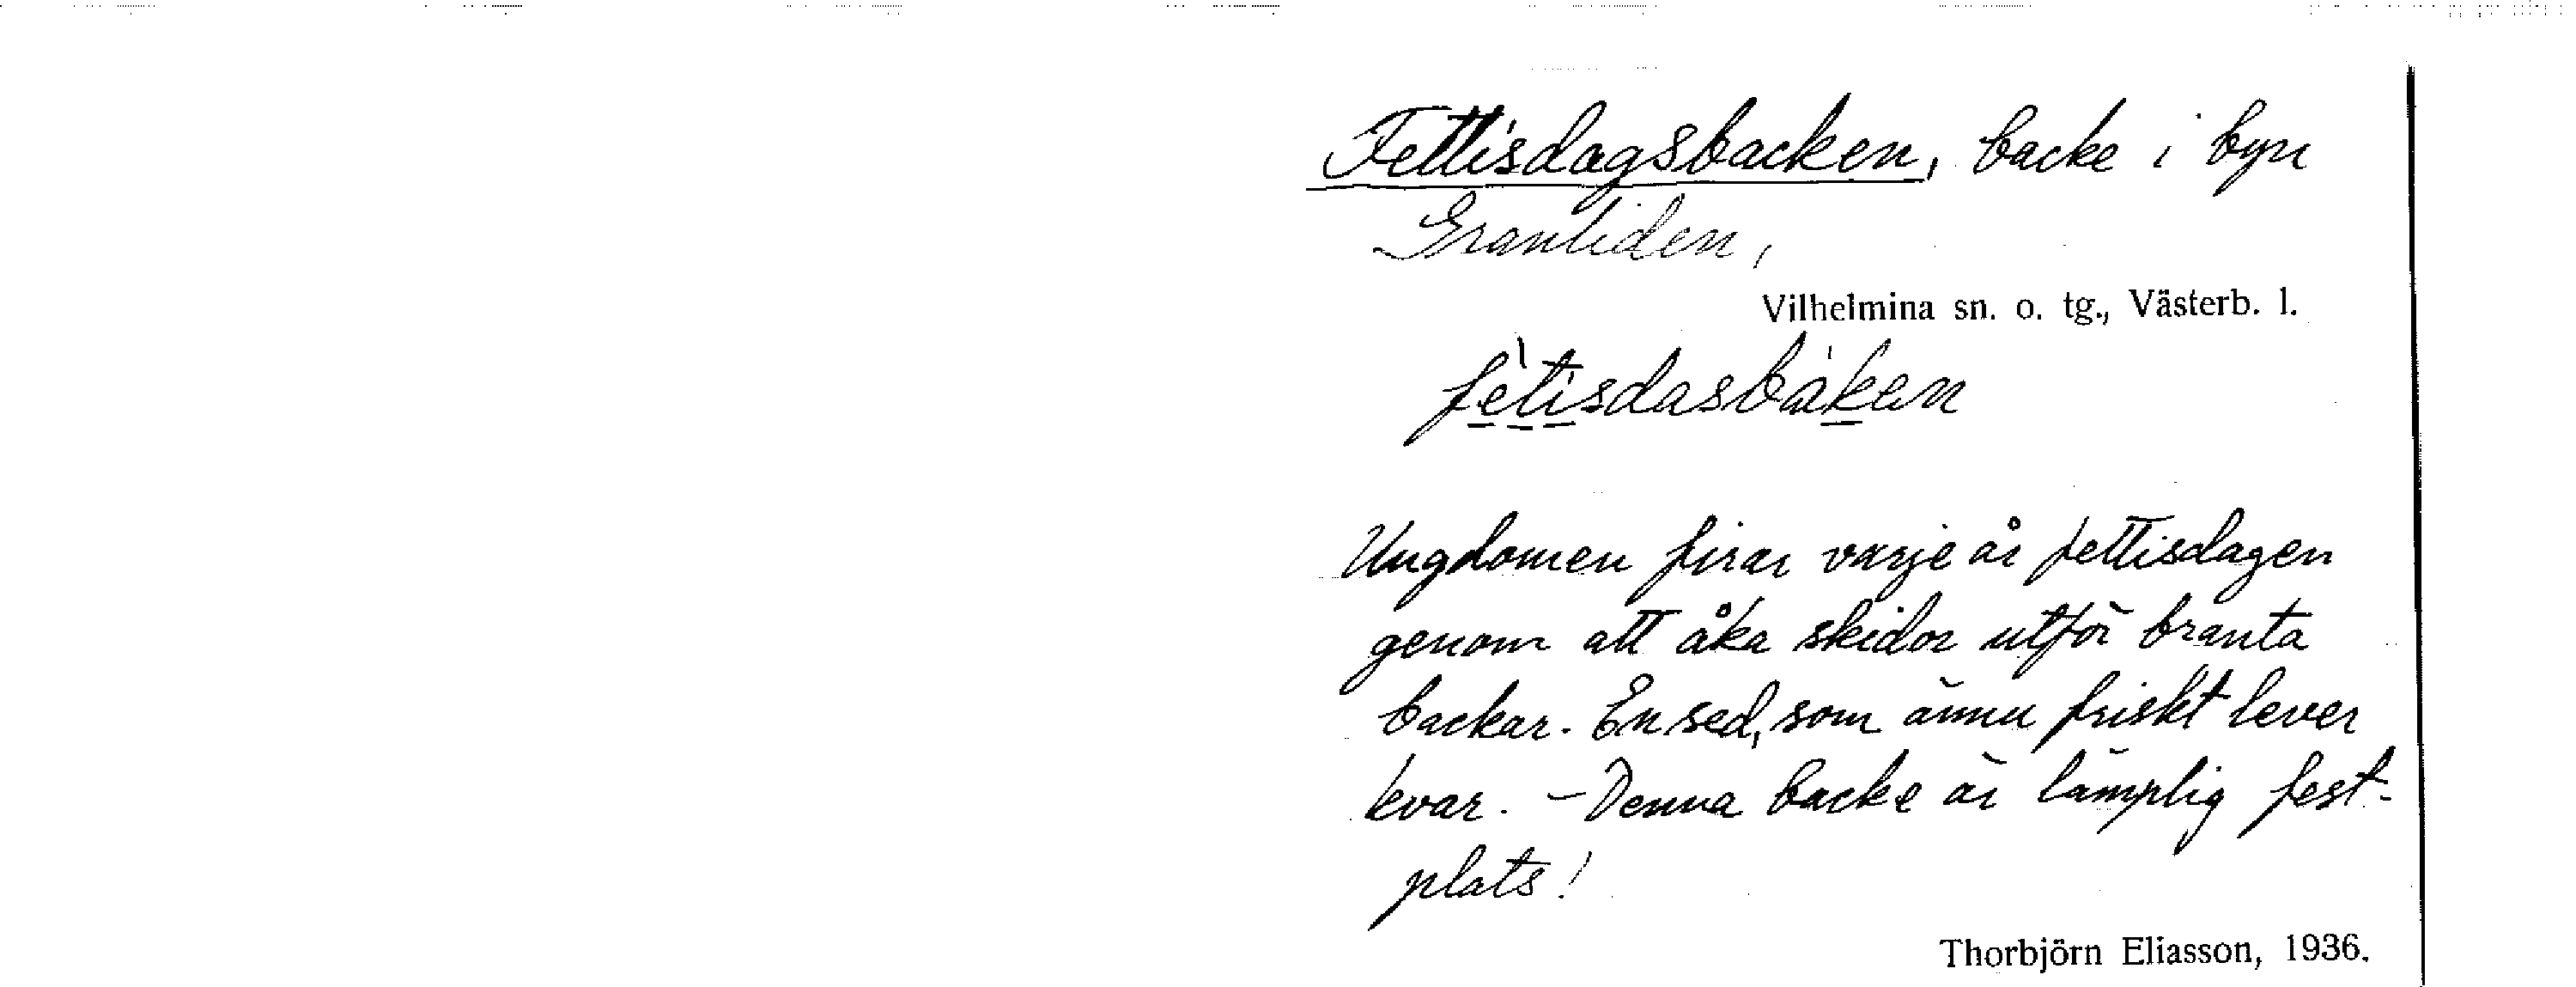 Fettisdagsbacken, backe i byn
Granliden,
Vilhelmina sn. o. tg., Västerb. l.
fètisdasbáken
Ungdomen firar varje år fettisdagen
genom att åka skidor utför branta
backar. En sed, som ännu friskt lever
kvar. - Denna backe är lämplig fest-
plats!
Thorbjörn Eliasson, 1936.